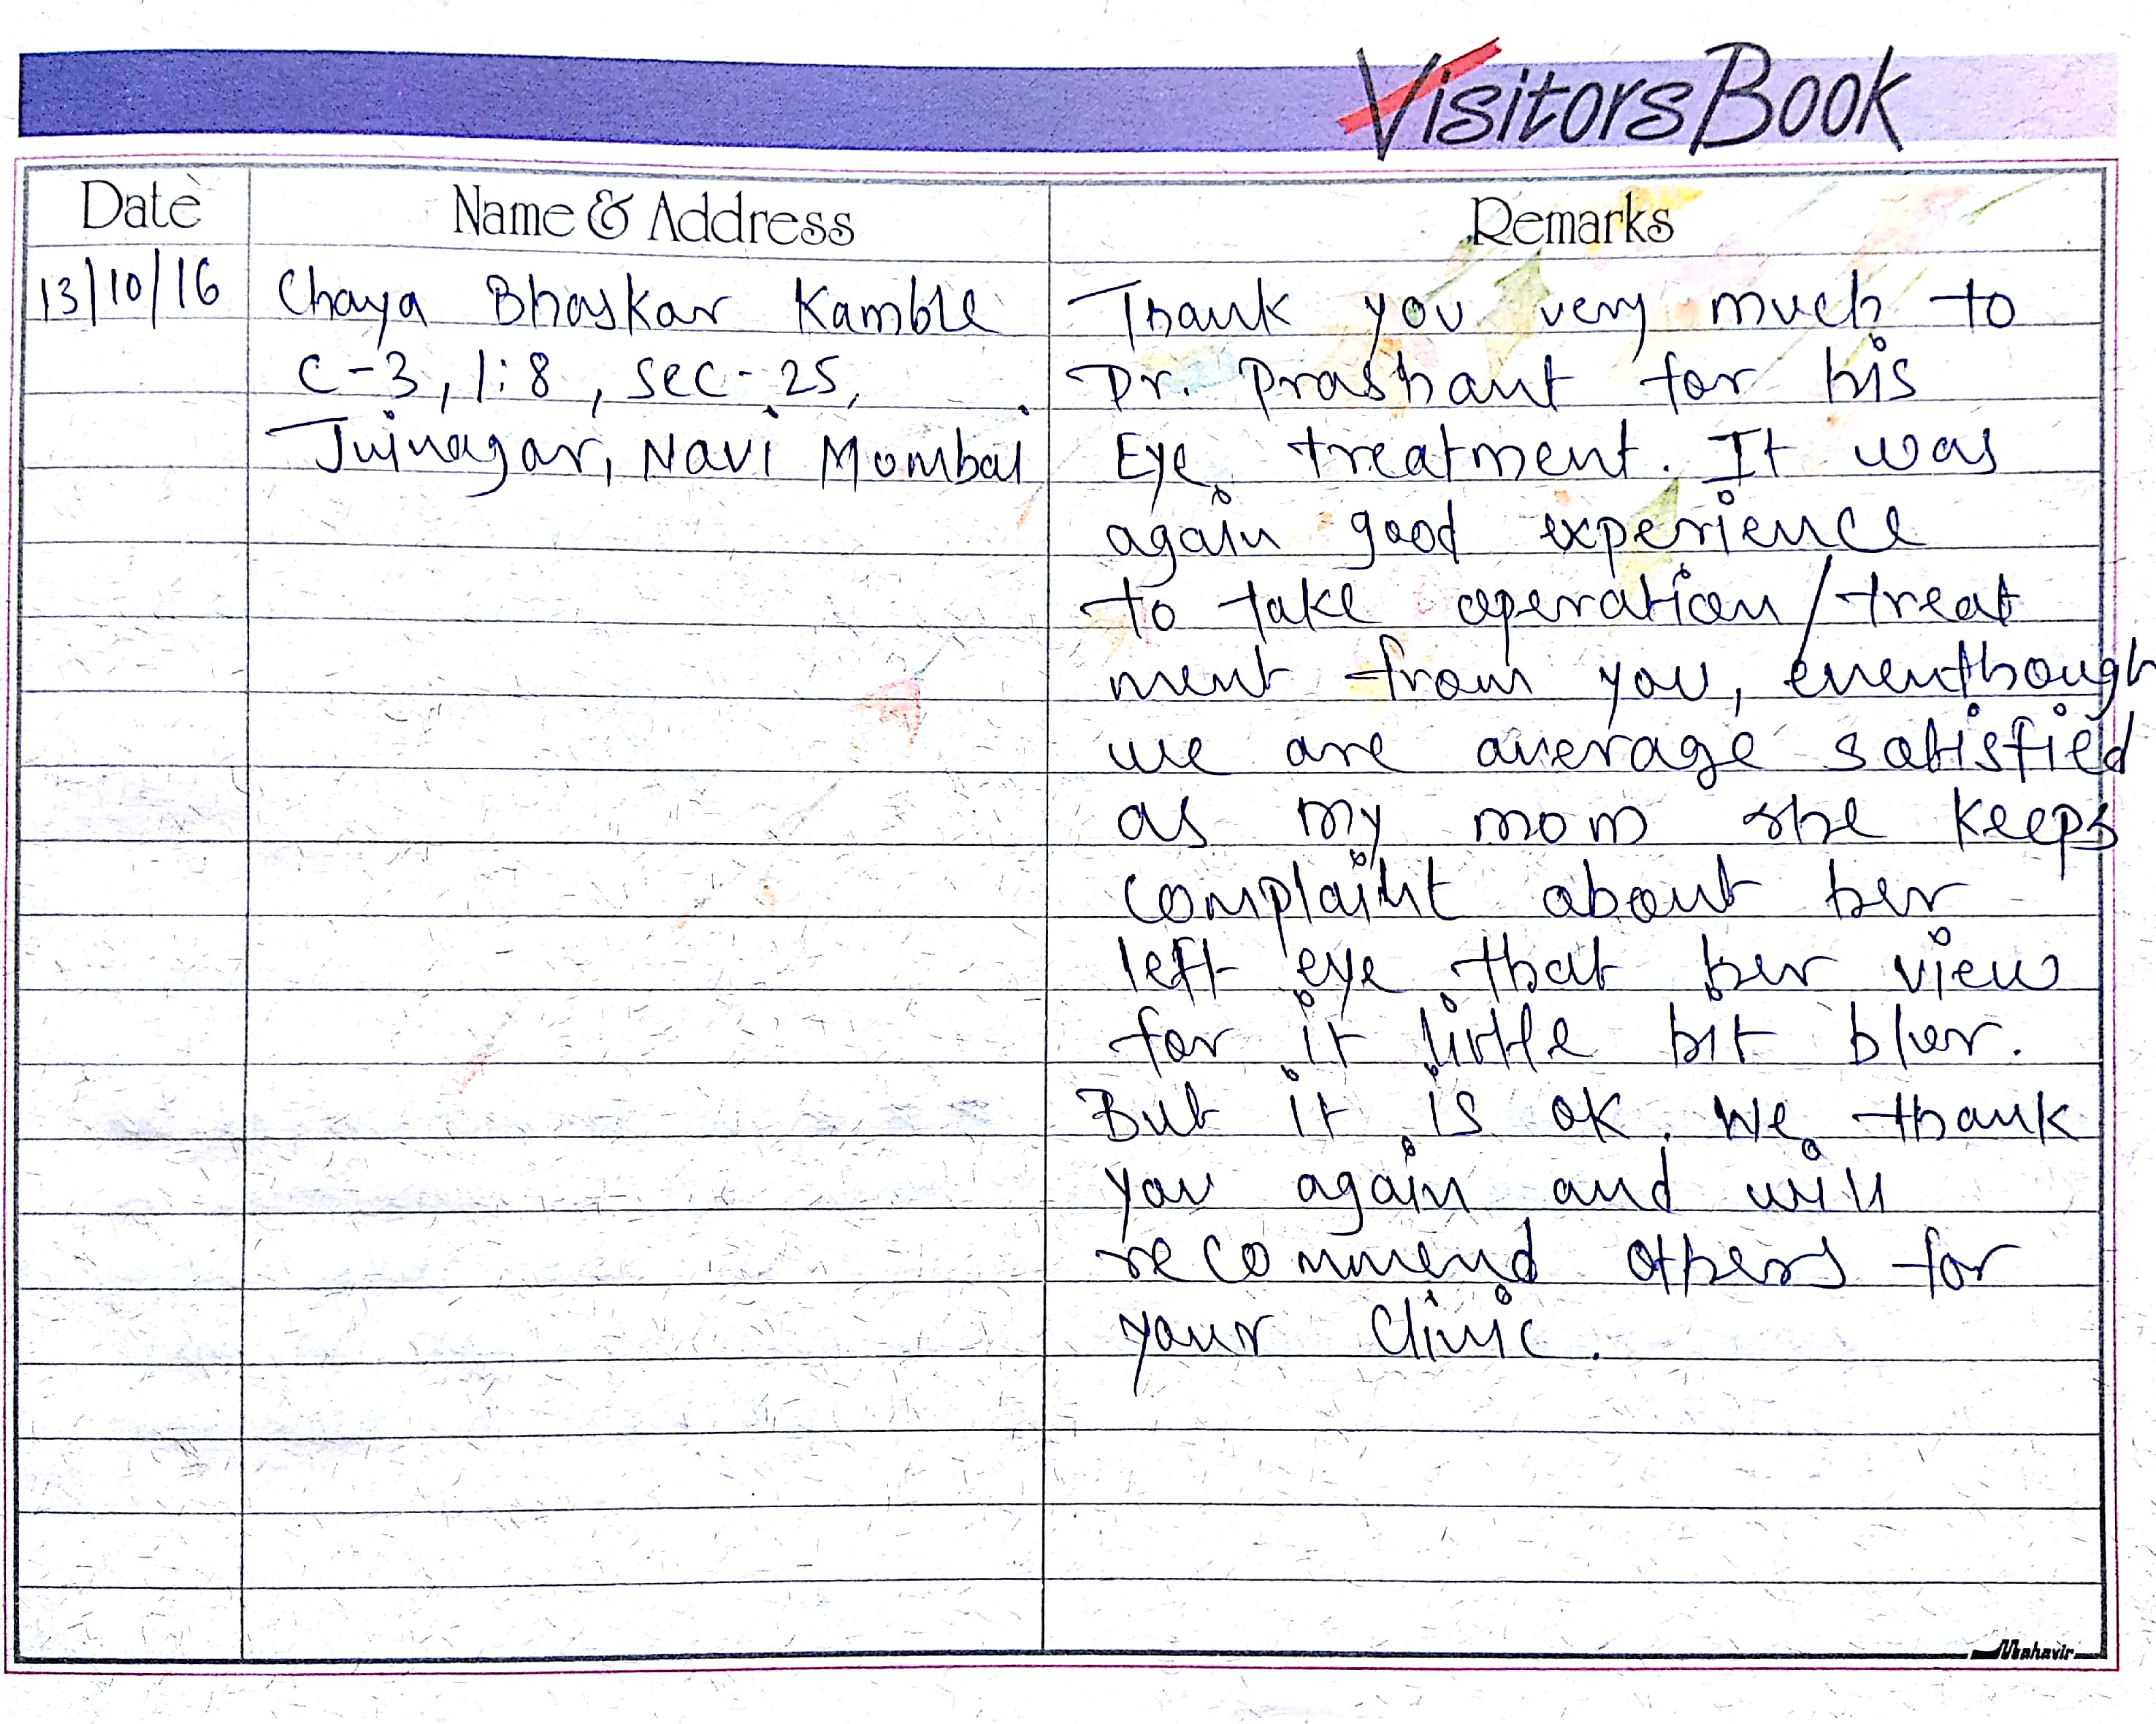 Visitors Book
Date Name & Address Remarks
13/10/16 Chaya Bhaskar Kamble Thank you very much to
C-3, 1:8, sec-25, Dr. Prashant for his
Juinagar, Navi Mumbai Eye treatment. It was
again good experience
to take operation/treat
ment from you, eventhough
we are average satisfied
as my mom she keeps
complaint about her
left eye that her view
for it little bit blur.
But it is ok. We thank
you again and will
recommend others for
your clinic.
Mahavir